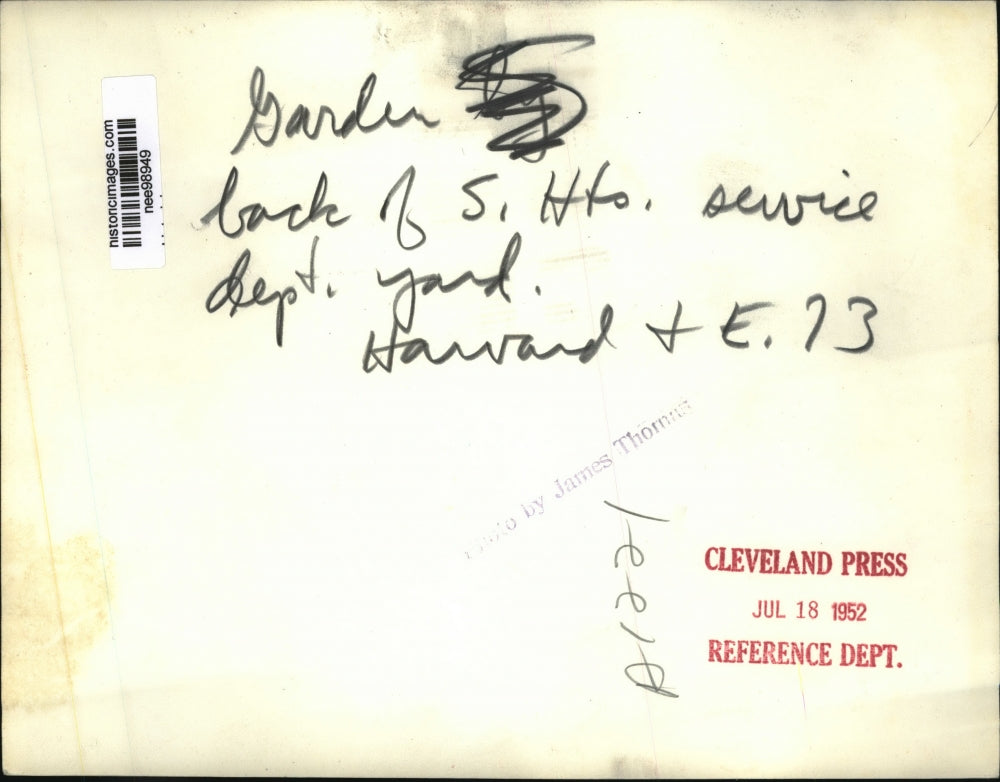 Garden
back of S. Hts. service
dept. yard.
Harvard + E. 73
historicimages.com
nee98949
Photo by James Thomas
CLEVELAND PRESS
JUL 18 1952
REFERENCE DEPT.